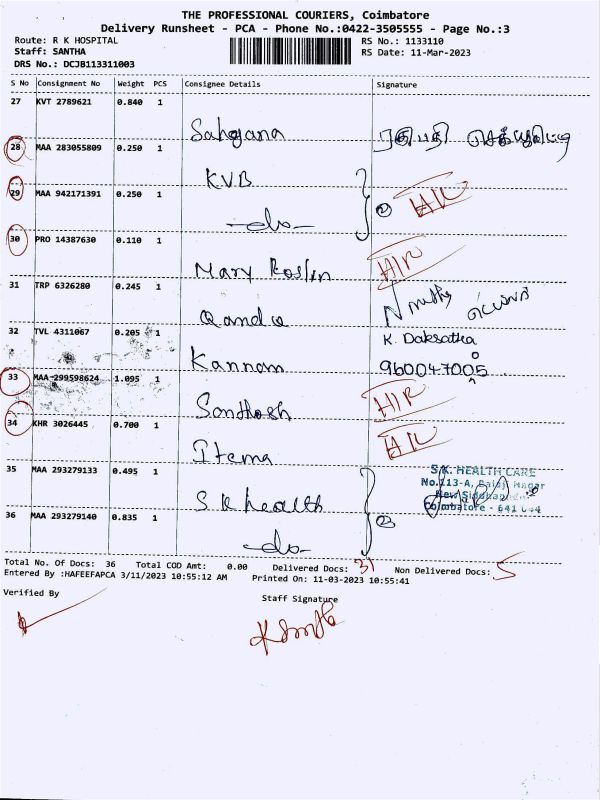 THE PROFESSIONAL COURIERS, Coimbatore
Delivery Runsheet - PCA - Phone No.:0422-3505555 - Page No.:3
Route: R K HOSPITAL
Staff: SANTHA
DRS No.: DCJB113311003
RS No.: 1133110
RS Date: 11-Mar-2023
S No Consignment No Weight PCS Consignee Details Signature
27 KVT 2789621 0.840 1
Sahayana
28 MAA 283055809 0.250 1
KVB
29 MAA 942171391 0.250 1
-do- 2
30 PRO 14387630 0.110 1
Mary Roslin
31 TRP 6326280 0.245 1
32 TVL 4311067 0.205 1 K. Daksatha
Kannan 9600470005
33 MAA-299598624 1.095 1
Santhosh
34 KHR 3026445 0.700 1
Itema
35 MAA 293279133 0.495 1 S.K. HEALTH CARE
S K health No.113-A, Balaji Nagar
36 MAA 293279140 0.835 1 Coimbatore - 641
-do- 2
Total No. Of Docs: 36 Total COD Amt: 0.00 Delivered Docs: 31 Non Delivered Docs: 5
Entered By :HAFEEFAPCA 3/11/2023 10:55:12 AM Printed On: 11-03-2023 10:55:41
Verified By Staff Signature